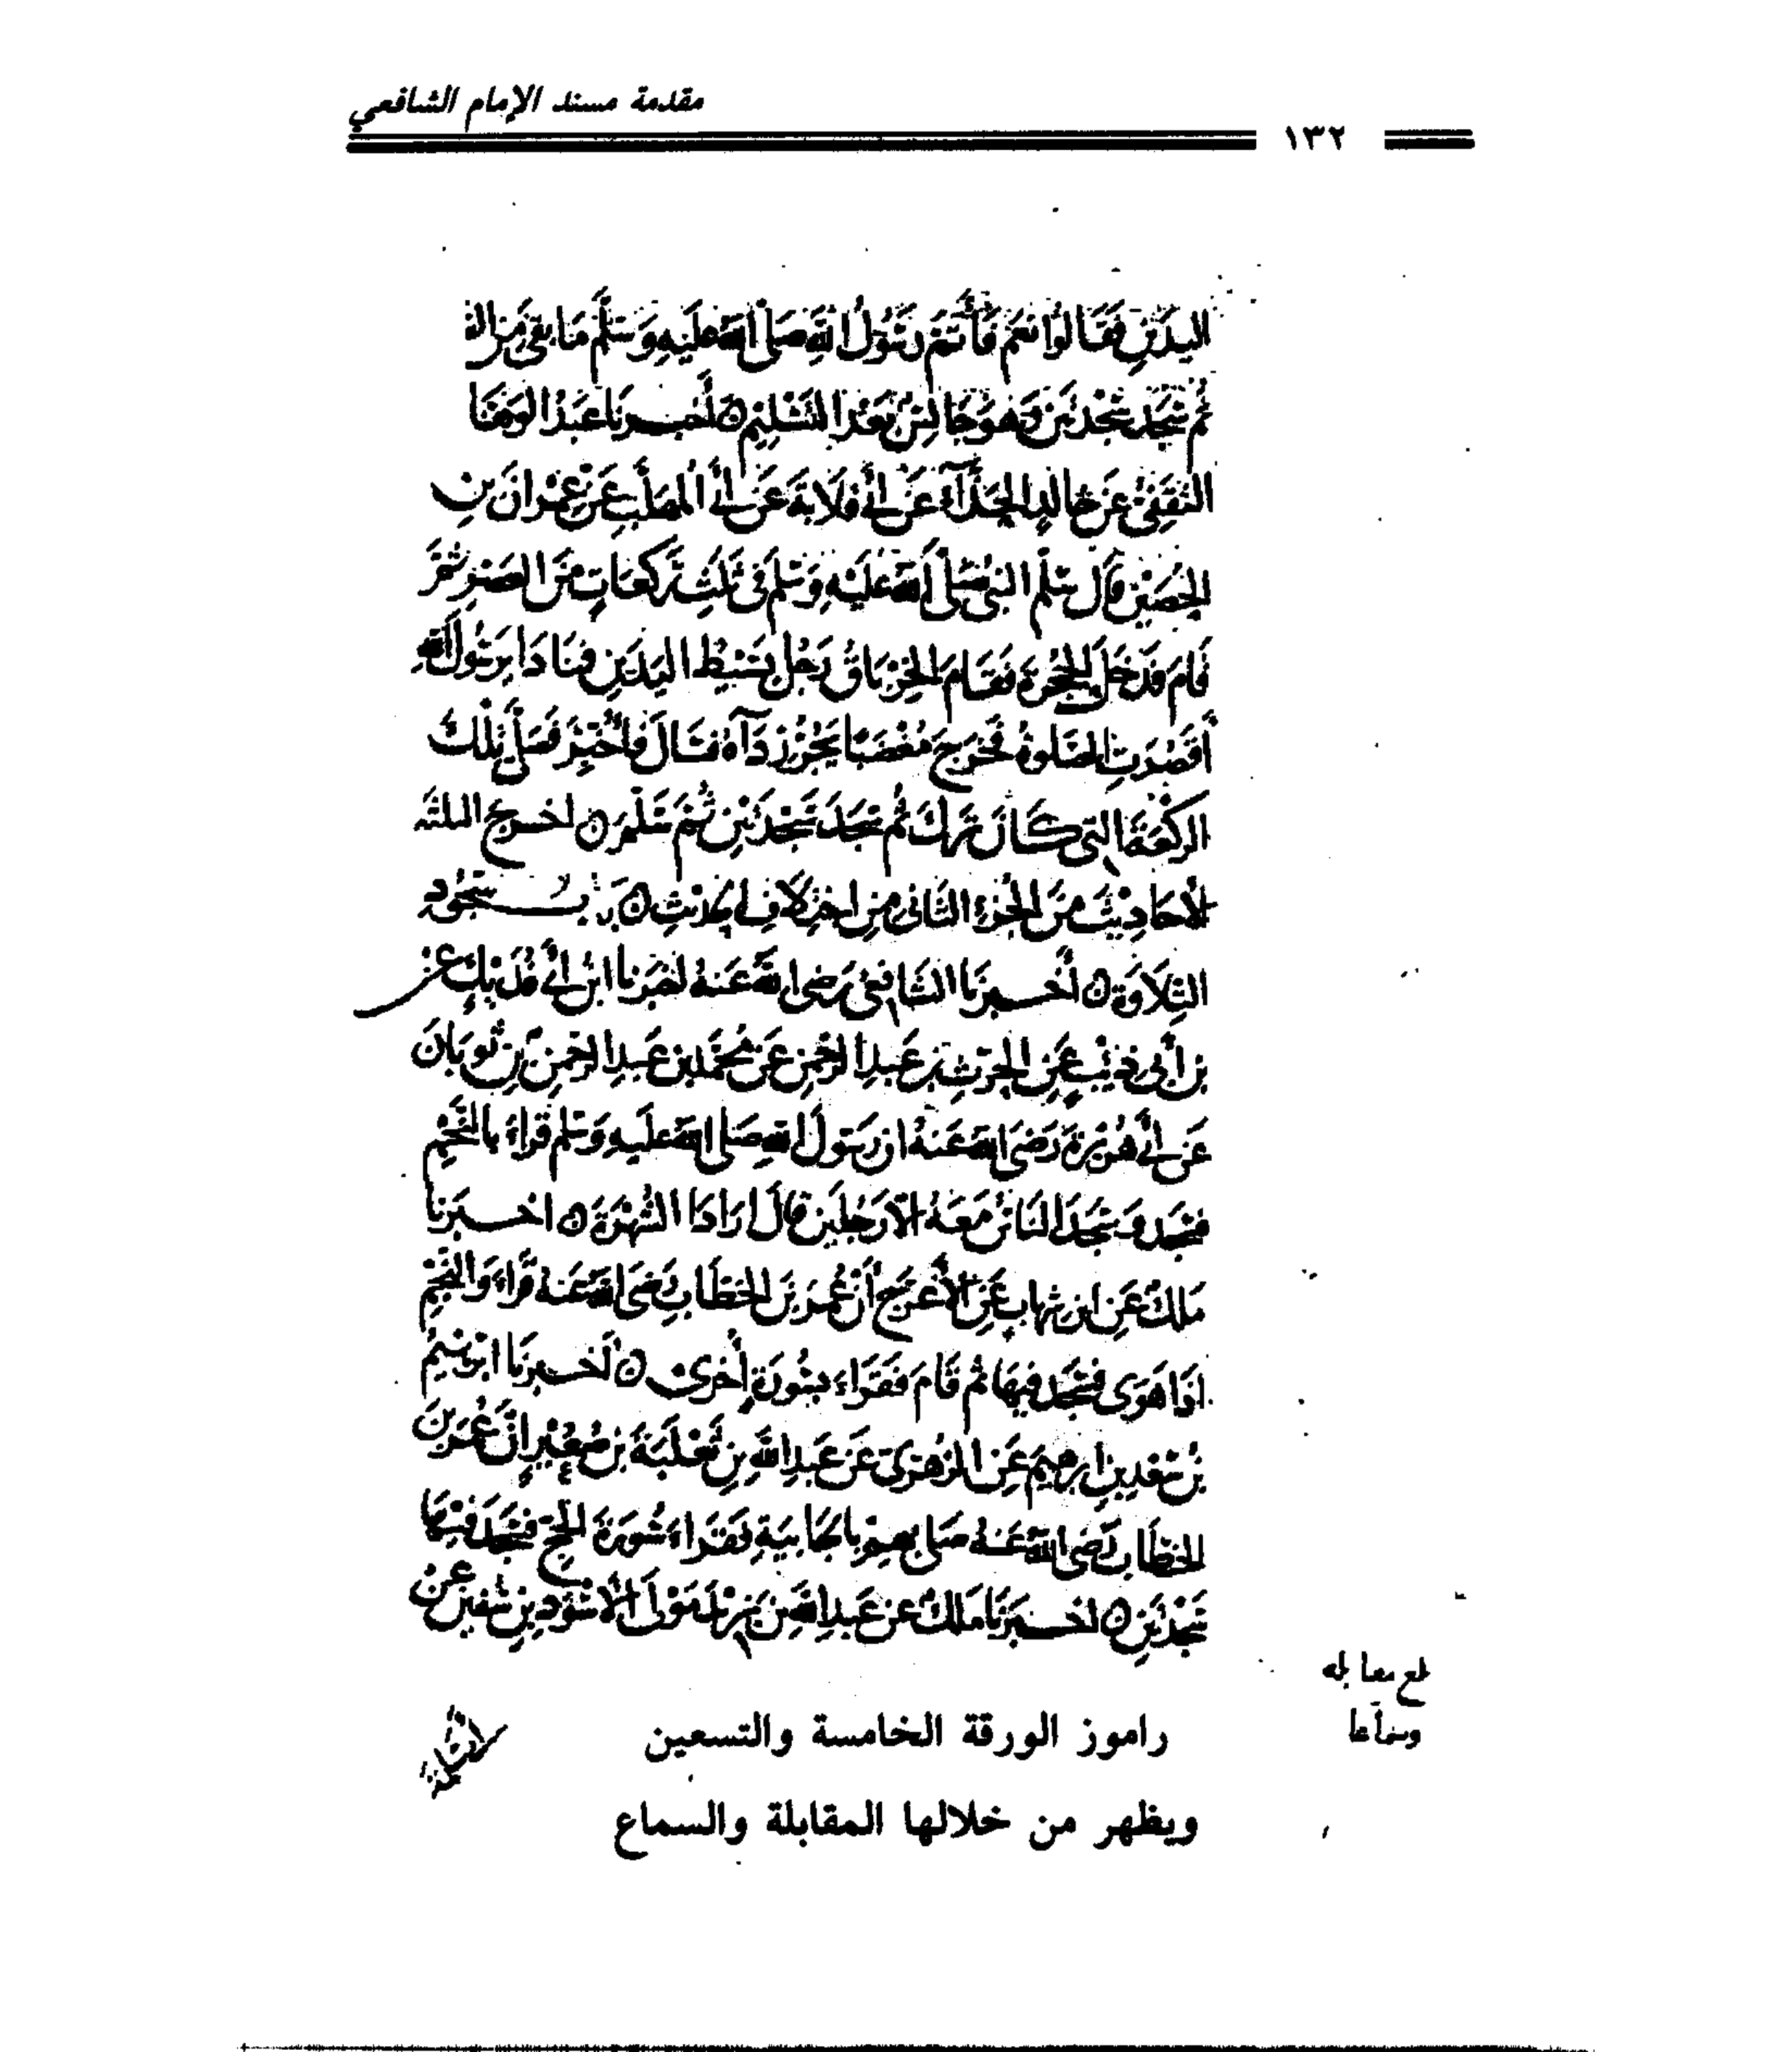 مقدمة مسند الإمام الشافعي
١٣٢
اليدين فقالوا نعم فأتم رسول الله صلى الله عليه وسلم ما بقي من الصلاة
ثم سجد سجدتين وهو جالس بعد التسليم ۞ أخبرنا عبد الوهاب
الثقفي عن خالد الحذآء عن أبي قلابة عن أبي المهلب عن عمران بن
الحصين قال سلم النبي صلى الله عليه وسلم في ثلث ركعات من العصر ثم
قام فدخل الحجرة فقام الخرباق رجل بسيط اليدين فنادا يرسول الله
أقصرت الصلوة فخرج مغضبا يجر ردآه فسال فأخبر فصلى تلك
الركعة التي كان ترك ثم سجد سجدتين ثم سلم ۞ اخرج الثلثه
الأحاديث من الجزء الثاني من اختلاف الحديث ۞ باب سجود
التلاوة ۞ أخبرنا الشافعي رضى الله عنه اخبرنا ابن أبي فديك عن
بن أبي ذئب عن الحرث بن عبد الرحمن عن محمد بن عبد الرحمن بن ثوبان
عن أبي هريرة رضى الله عنه ان رسول الله صلى الله عليه وسلم قراء بالنجم
فسجد وسجد الناس معه الا رجلين قال ارادا الشهرة ۞ اخبرنا
ملك عن ابن شهاب عن الأعرج أن عمر بن الخطاب رضى الله عنه قراء والنجم
اذا هوى فسجد فيها ثم قام فقراء بسورة أخرى ۞ أخبرنا ابرهيم
بن سعد بن ابرهيم عن الزهرى عن عبد الله بن ثعلبة بن صعير ان عمر بن
الخطاب رضى الله عنه صلى بهم بالجابية فقراء سورة الحج فسجد فيها
سجدتين ۞ اخبرنا ملك عن عبد الله بن يزيد مولى الأسود بن سفين عن
بلغ مقابله
وسماعا
راموز الورقة الخامسة والتسعين
ويظهر من خلالها المقابلة والسماع